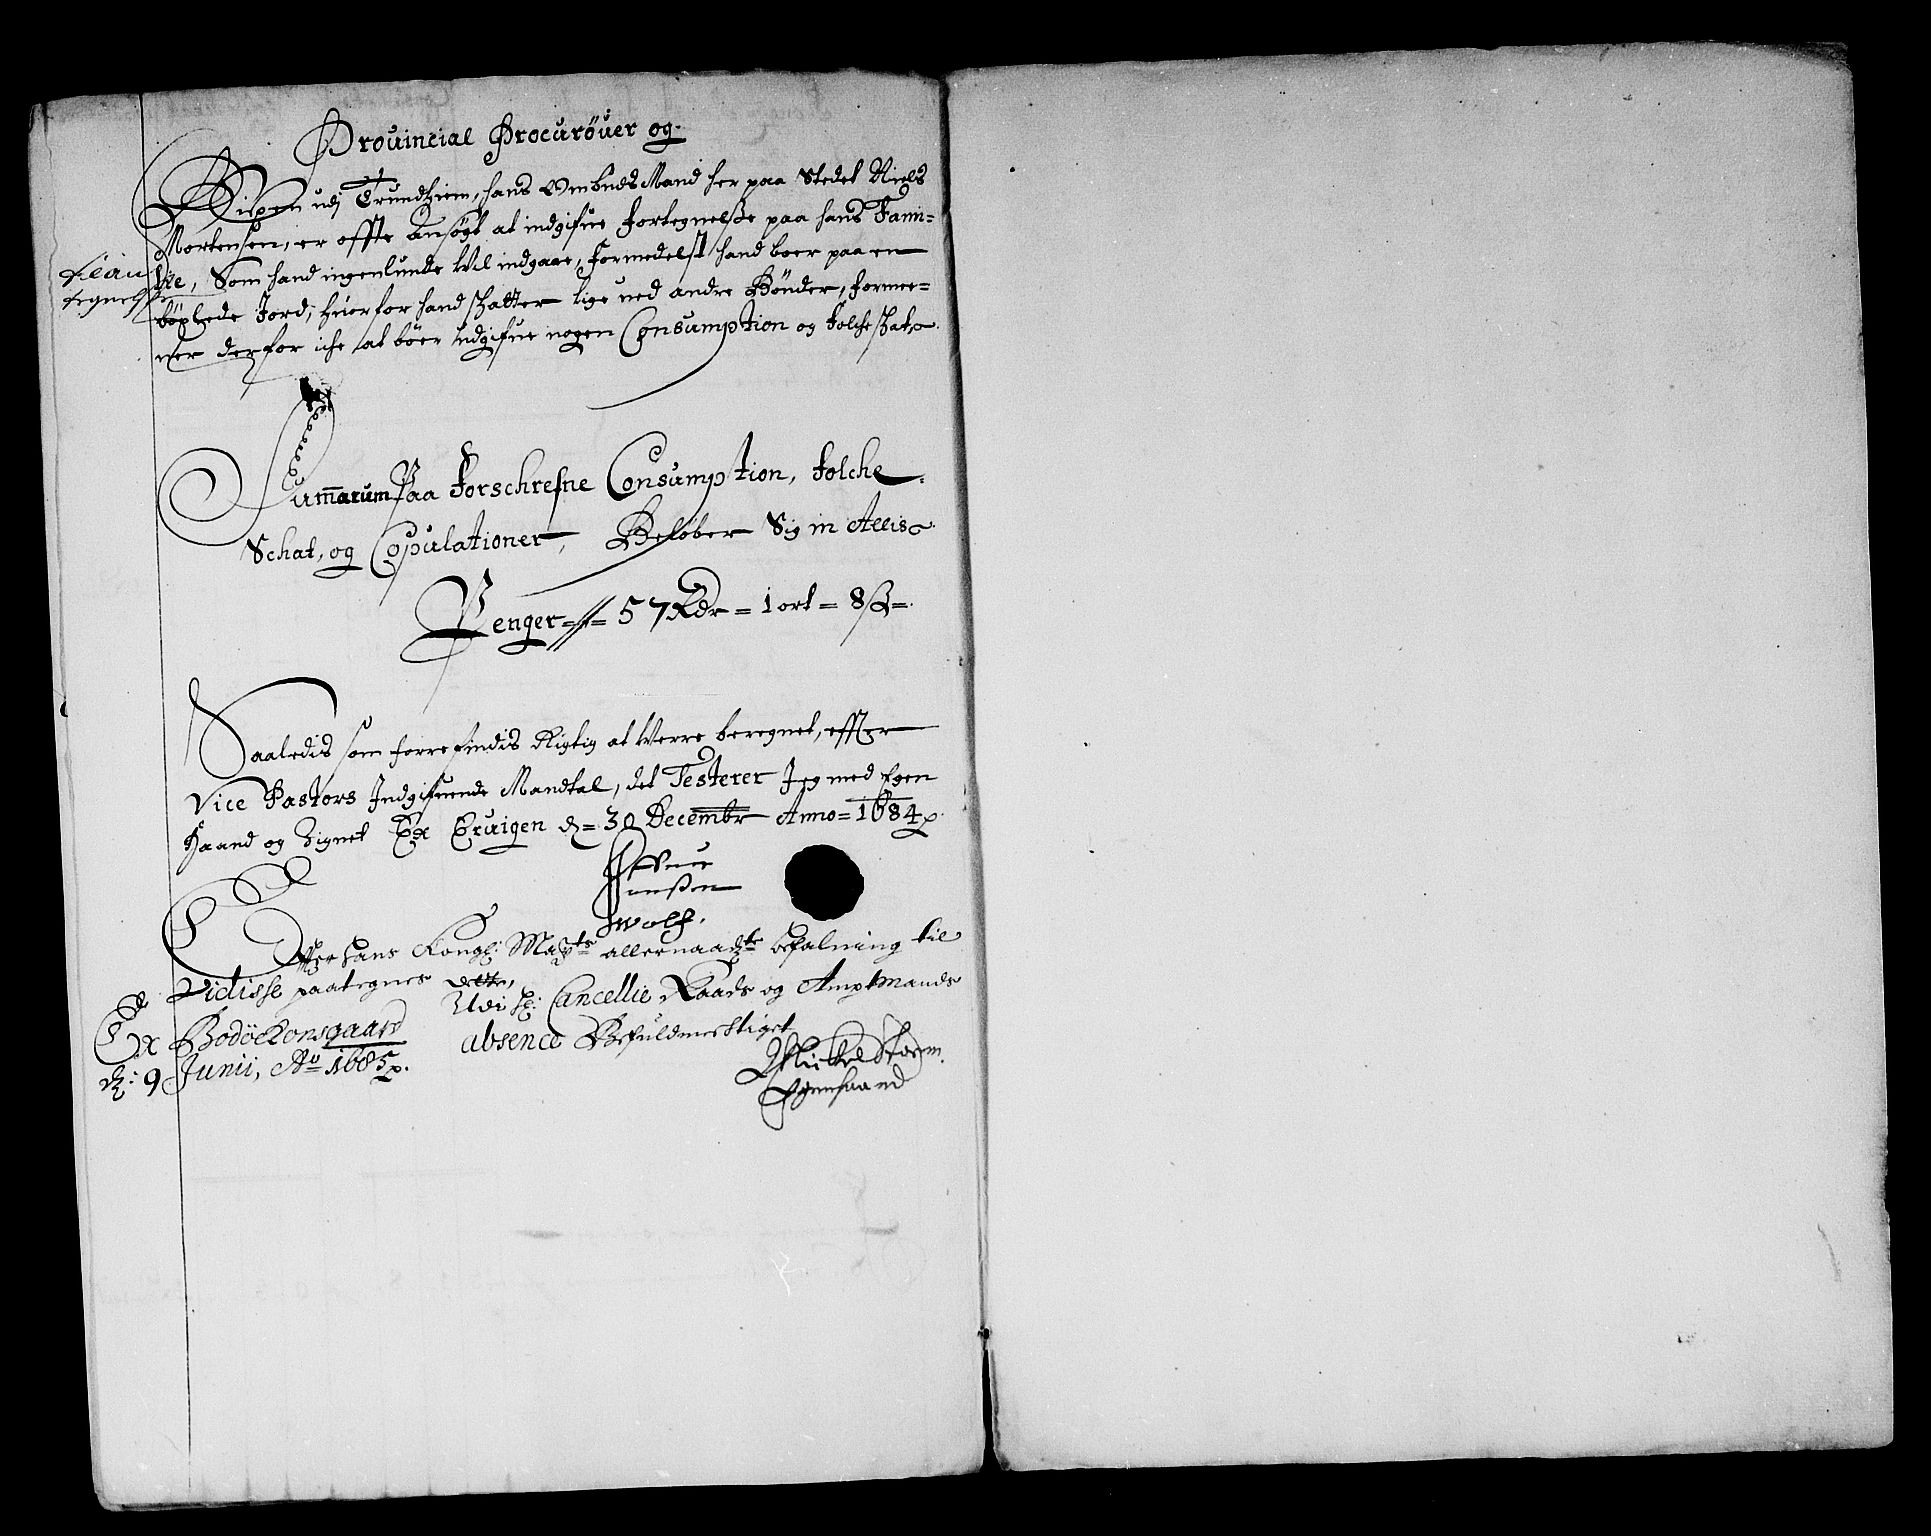 Prouincial Procurøuer og
Bispen udj Trundhiem, hans Ombuds Mand her paa Stedet Niels
Mortensen, er offte Ansøgt at indgifue fortegnelse paa hans Fami=
lie, Som hand ingenlunde Vil indgaae, formedelst hand boer paa en
bøxlede Jord, huorfor hand skatter lige ued andre Bønder, formee=
ner derfor iche at bøer udgifue nogen Consumption og folche skat
Sum̄arum Paa forschrefne Consumption, folche
Schat, og Copulationer, Beløber Sig in Allis
Penger 57 Rdr = 1 ort = 8 ß =
Saaledis som forre findis Rigtig at Verre beregnet, effter
Vice Pastors Indgifuende Mandtal, det Testerer Jeg med Egen
Haand og Zignet Ex Eruigen d = 30 Decembr Anno = 1684
Janssen
Wolf.
Effter hans Kongl: Mayts allernaadte befalning til
Vidisse paategnes dette,
Udi H: Cancellie Raads og Amptmands
Ex Bodøe Konsgaard
absence Befuldmechtiget
d: 9 Junii, Ao 1685
Michel Storm
Egenhaand